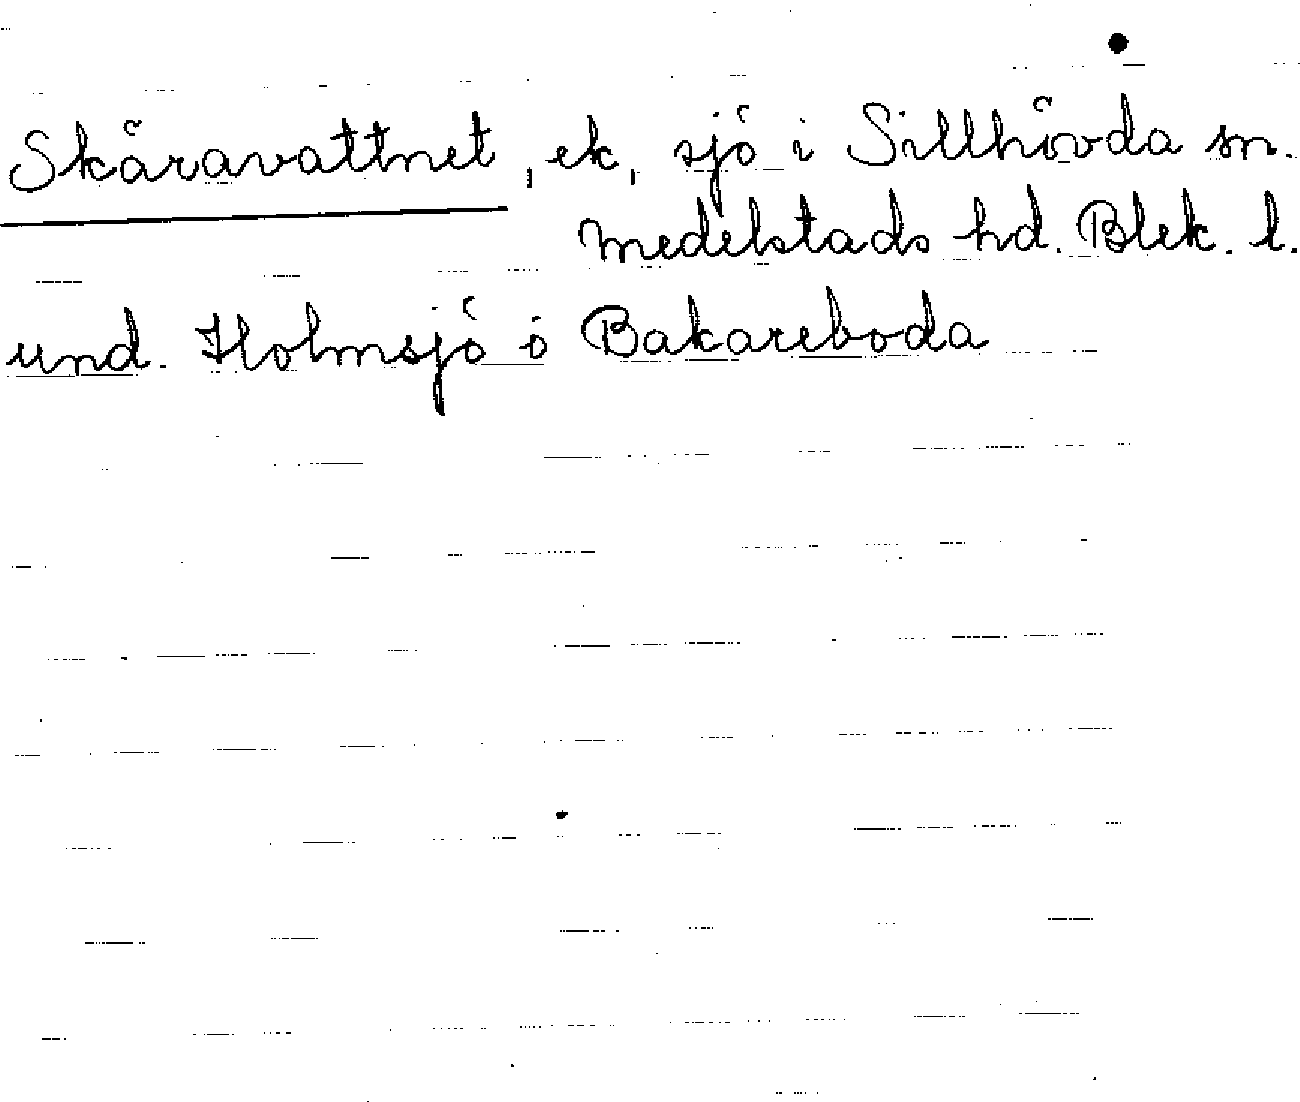 Skäravattnet, ek, sjö i Sillhövda sn.
Medelstads hd. Blek. l.
und. Holmsjö o Bakareboda